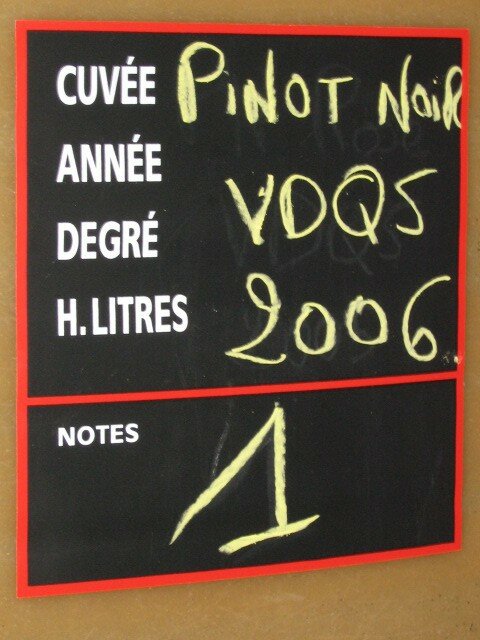 CUVÉE PINOT NOIR
ANNÉE
DEGRÉ VDQS
H.LITRES 2006
NOTES
1